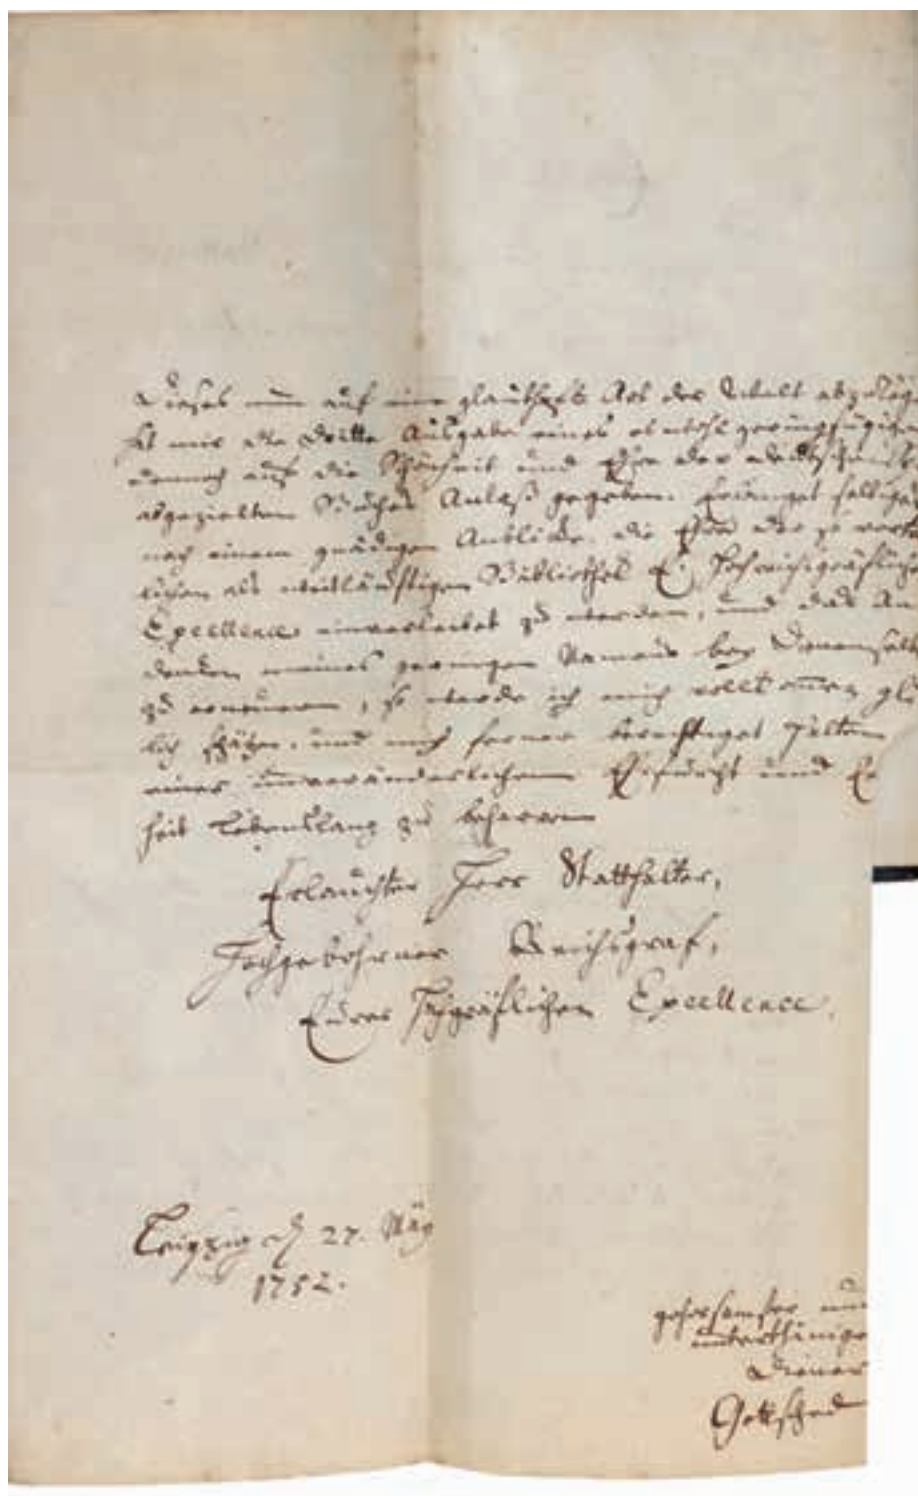 Dieses nun auf eine glaubhafte Art der Welt abzuleg
hat mir die dritte Ausgabe eines obwohl geringfügigen
dennoch auf die Schönheit und Ehre der deutschen
abgezielten Buches Anlaß gegeben. Gelanget selbiges
nach einem gnädigen Anblicke, die Ehre der so
lichen als weitläuftigen Bibliothek E. Hochreichsgräflichen
Excellence einverleibet zu werden, und das An
denken meines geringen Namens bey
zu erneuern, so werde ich mich vollkommen glü
lich schätzen, und mich ferner berechtiget halten
einer unveränderlichen Ehrfurcht und Er
heit Lebenslang zu beharren
Erlauchter Herr Statthalter,
Hochgebohrner Reichsgraf,
Eurer Hochgräflichen Excellence,
Leipzig d 27. März
1752.
gehorsamster und
unterthäniger
Diener
Gottsched